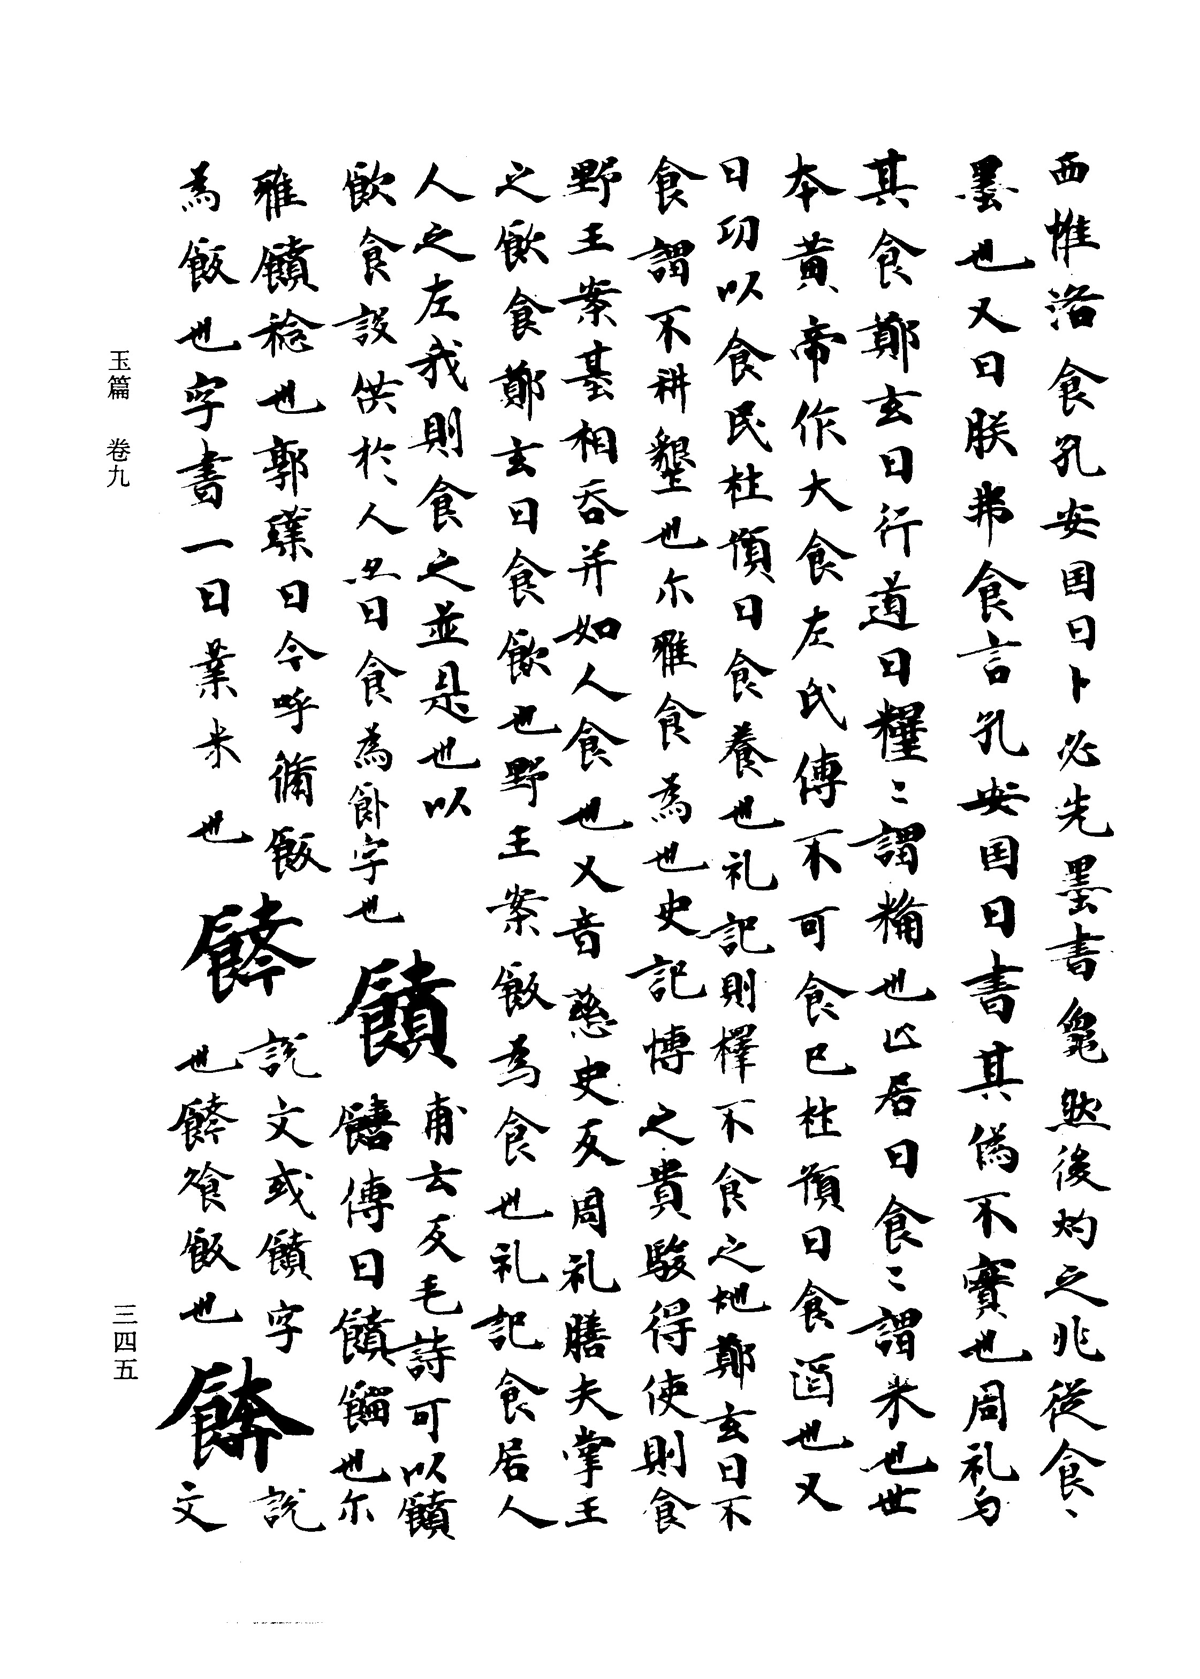 西惟洛食孔安国曰卜必先墨書龜然後灼之兆從食〻
墨也又曰朕弗食言孔安国曰書其偽不實也周礼与
其食鄭玄曰行道曰糧〻謂糒也止居曰食〻謂米也世
本黄帝作大食左氏傳不可食已杜預曰食消也又
曰功以食民杜預曰食養也礼記則擇不食之地鄭玄曰不
食謂不耕墾也尓雅食為也史記博之貴駿得使則食
野王案基相吞并如人食也又音慈史反周礼膳夫掌王
之飲食鄭玄曰食飲也野王案飯為食也礼記食居人
人之左我則食之並是也以
飲食設供於人亦曰食為飤字也
饙
甫云反毛詩可以饙
饎傳曰饙餾也尓
雅饙稔也郭璞曰今呼脩飯
為飯也字書一曰葉米也
䬬
說文或饙字
也䬬飧飯也
餴
說
文
玉篇 卷九
三四五